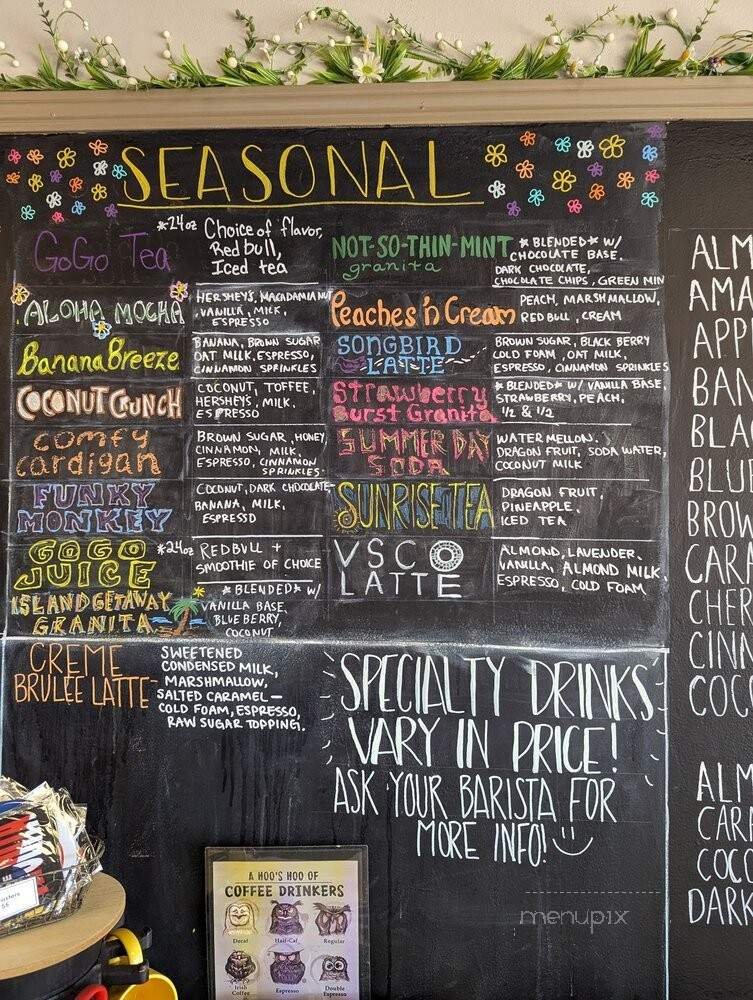 SEASONAL
GoGo Tea
*24oz Choice of flavor,
Red bull,
Iced tea
ALOHA MOCHA
HERSHEYS, MACADAMIA NUT
VANILLA, MILK,
ESPRESSO
Banana Breeze
BANANA, BROWN SUGAR
OAT MILK, ESPRESSO,
CINNAMON SPRINKLES
COCONUT CRUNCH
COCONUT, TOFFEE,
HERSHEYS, MILK,
ESPRESSO
comfy
cardigan
BROWN SUGAR, HONEY,
CINNAMON, MILK,
ESPRESSO, CINNAMON
SPRINKLES
FUNKY
MONKEY
COCONUT, DARK CHOCOLATE
BANANA, MILK,
ESPRESSO
GOGO
JUICE
*24oz REDBULL +
SMOOTHIE OF CHOICE
ISLAND GETAWAY
GRANITA
*BLENDED* W/
VANILLA BASE,
BLUEBERRY,
COCONUT
NOT-SO-THIN-MINT
granita
*BLENDED* W/
CHOCOLATE BASE,
DARK CHOCOLATE,
CHOCOLATE CHIPS, GREEN MIN
Peaches 'n Cream
PEACH, MARSHMALLOW,
RED BULL, CREAM
SONGBIRD
LATTE
BROWN SUGAR, BLACK BERRY
COLD FOAM, OAT MILK,
ESPRESSO, CINNAMON SPRINKLES
Strawberry
Burst Granita
*BLENDED* W/ VANILLA BASE,
STRAWBERRY, PEACH,
1/2 & 1/2
SUMMER DAY
SODA
WATER MELLON,
DRAGON FRUIT, SODA WATER,
COCONUT MILK
SUNRISE TEA
DRAGON FRUIT,
PINEAPPLE,
ICED TEA
VSCO
LATTE
ALMOND, LAVENDER,
VANILLA, ALMOND MILK,
ESPRESSO, COLD FOAM
CREME
BRULEE LATTE-
SWEETENED
CONDENSED MILK,
MARSHMALLOW,
SALTED CARAMEL-
COLD FOAM, ESPRESSO,
RAW SUGAR TOPPING.
SPECIALTY DRINKS
VARY IN PRICE!
ASK YOUR BARISTA FOR
MORE INFO!
A HOO'S HOO OF
COFFEE DRINKERS
Decaf
Half-Caf
Regular
Irish
Coffee
Espresso
Double
Espresso
menupix
ALM
AMA
APP
BAN
BLA
BLUE
BROW
CARA
CHER
CINN
COCO
ALM
CARA
COCO
DARK